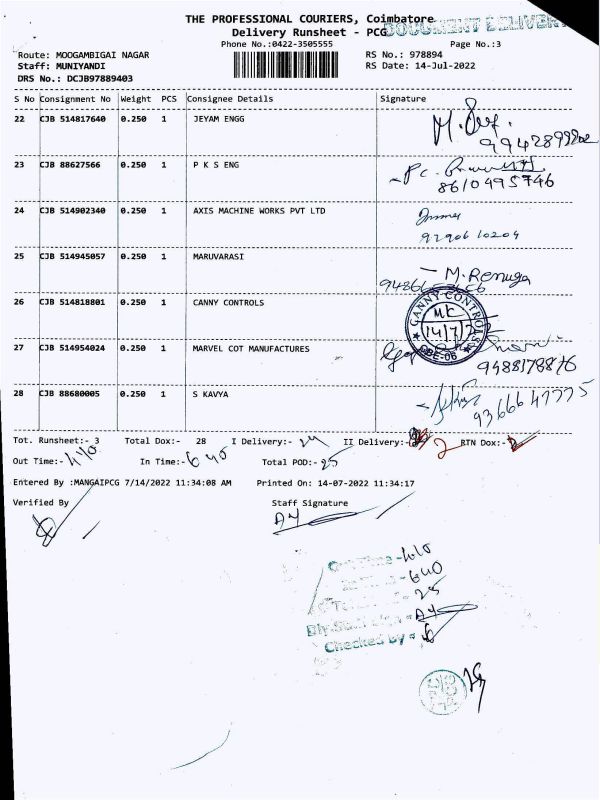 THE PROFESSIONAL COURIERS, Coimbatore
DOCUMENT DELIVERY
Delivery Runsheet - PCG
Phone No.:0422-3505555
Page No.:3
Route: MOOGAMBIGAI NAGAR
RS No.: 978894
Staff: MUNIYANDI
RS Date: 14-Jul-2022
DRS No.: DCJB97889403
S No Consignment No Weight PCS Consignee Details Signature
22 CJB 514817640 0.250 1 JEYAM ENGG
23 CJB 88627566 0.250 1 P K S ENG
8610495746
24 CJB 514902340 0.250 1 AXIS MACHINE WORKS PVT LTD
9290610204
25 CJB 514945057 0.250 1 MARUVARASI
- M. Renuga
26 CJB 514818801 0.250 1 CANNY CONTROLS
CANNY CONTROLS
14/7/
CBE-06
27 CJB 514954024 0.250 1 MARVEL COT MANUFACTURES
9488178876
28 CJB 88680005 0.250 1 S KAVYA
9366647775
Tot. Runsheet:- 3 Total Dox:- 28 I Delivery:- II Delivery:- 2 RTN Dox:-
Out Time:- In Time:- 640 Total POD:- 25
Entered By :MANGAIPCG 7/14/2022 11:34:08 AM Printed On: 14-07-2022 11:34:17
Verified By Staff Signature
Out Time
640
25
Checked by